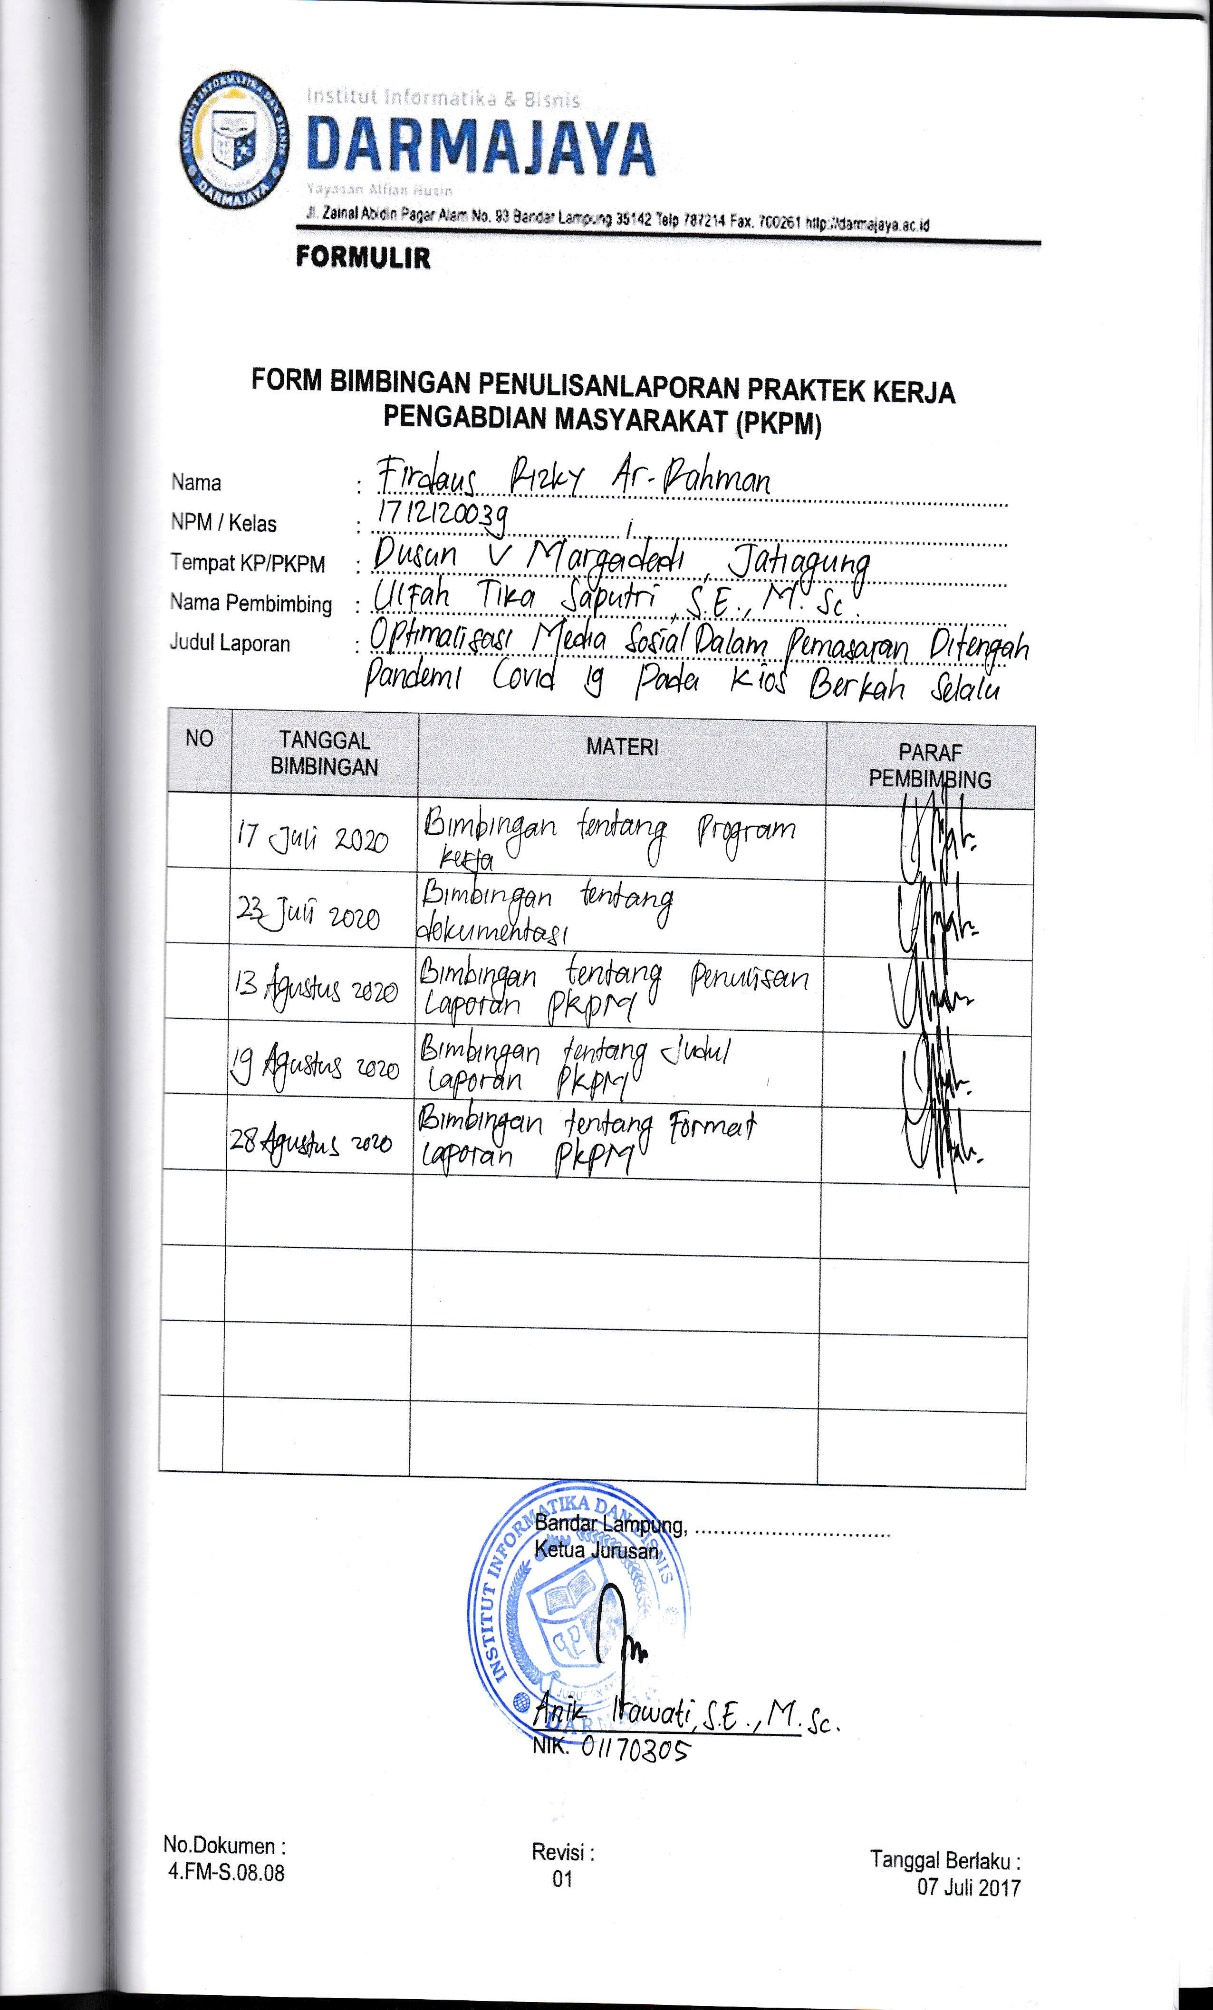 Institut Informatika & Bisnis
DARMAJAYA
Yayasan Alfian Husin
Jl. Zainal Abidin Pagar Alam No. 93 Bandar Lampung 35142 Telp 787214 Fax. 700261 http://darmajaya.ac.id
FORMULIR
FORM BIMBINGAN PENULISANLAPORAN PRAKTEK KERJA
PENGABDIAN MASYARAKAT (PKPM)
Nama : Firdaus Rizky Ar-Rahman
NPM / Kelas : 1712120039
Tempat KP/PKPM : Dusun V Margodadi, Jatiagung
Nama Pembimbing : Ulfah Tika Saputri, S.E., M.Sc.
Judul Laporan : Optimalisasi Media Sosial Dalam Pemasaran Ditengah
Pandemi Covid 19 Pada Kios Berkah Selalu
NO TANGGAL BIMBINGAN MATERI PARAF PEMBIMBING
17 Juli 2020 Bimbingan tentang Program
kerja
23 Juli 2020 Bimbingan tentang
dokumentasi
13 Agustus 2020 Bimbingan tentang Penulisan
Laporan PKPM
19 Agustus 2020 Bimbingan tentang Judul
Laporan PKPM
28 Agustus 2020 Bimbingan tentang Format
Laporan PKPM
Bandar Lampung, ................................
Ketua Jurusan
INSTITUT INFORMATIKA DAN BISNIS
DARMAJAYA
Anik Irawati, S.E., M.Sc.
NIK. 01170305
No.Dokumen : Revisi : Tanggal Berlaku :
4.FM-S.08.08 01 07 Juli 2017